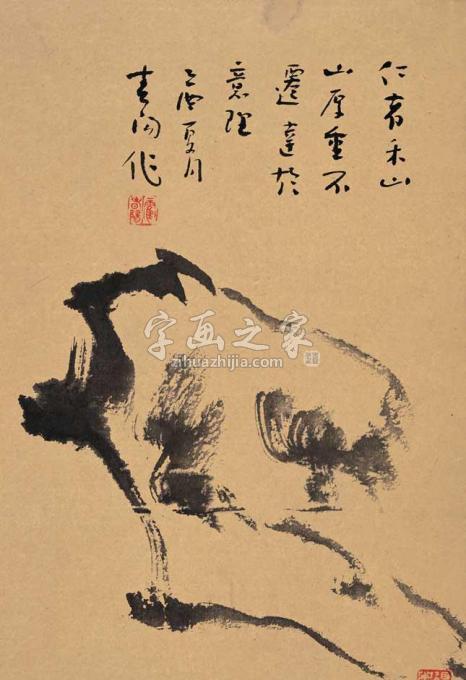 仁者乐山
山厚重不
遷達於
意理
乙酉夏月
作
字画之家
zihuazhijia.com